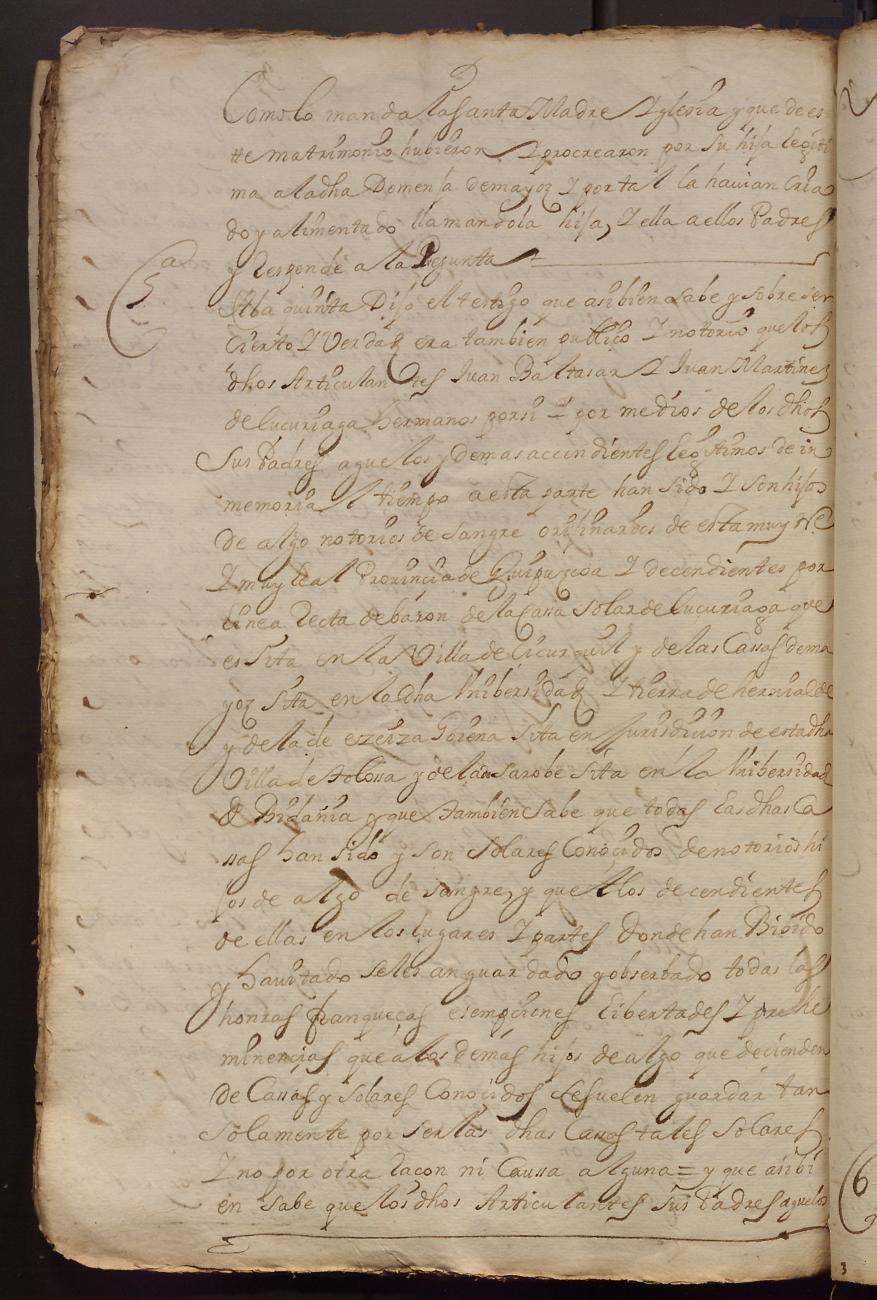 Como lo manda la santa Madre Iglesia y que de es
te matrimonio hubieron I procrearon por su hija legiti
ma a la dha Domenja de mayoz I por tal la havian cria
do y alimentado llamandola hija, I ella a ellos Padres
y responde a la Pregunta
5 a
A la quinta Dijo el testigo que asi bien sabe y sobre ser
Cierto I Verdad era tambien publico I notorio que los
dhos Articulantes Juan Baltasar I Juan Martinez
de lucuriaga hermanos por si I por medios de los dhos
Sus Padres aguelos y demas accindientes legitimos de in
memorial tiempo a esta parte han sido I son hijos
de algo notorios de sangre orijinarios de esta muy Ne
I muy leal Provincia de Guipuzcoa I decendientes por
linea recta de baron de la Cassa solar de lucuriaga que
es sita en la Villa de Cicurquil y de las Cassas de ma
yoz sita en la dha Unibersidad I tierra de hernialde
y de la de ezeiza Goiena sita en Jurisdicion de esta dha
Villa de tolossa y de la de sarobe sita en la Unibersidad
de Bidania y que tambien sabe que todas las dhas Ca
ssas han sido y son solares Conocidos de notorios hi
jos de algo de sangre, y que a los decendientes
de ellas en los lugares I partes donde han Bibido
y havitado se les an guardado y obserbado todas las
honras franqueças esempciones libertades I prehe
minencias que a los demas hijos de algo que decienden
de Cassas y solares Conocidos se suelen guardar tan
solamente por ser las dhas Cassas tales solares
I no por otra racon ni Caussa alguna = y que asi bi
en sabe que los dhos Articulantes sus Padres aguelos
6
3